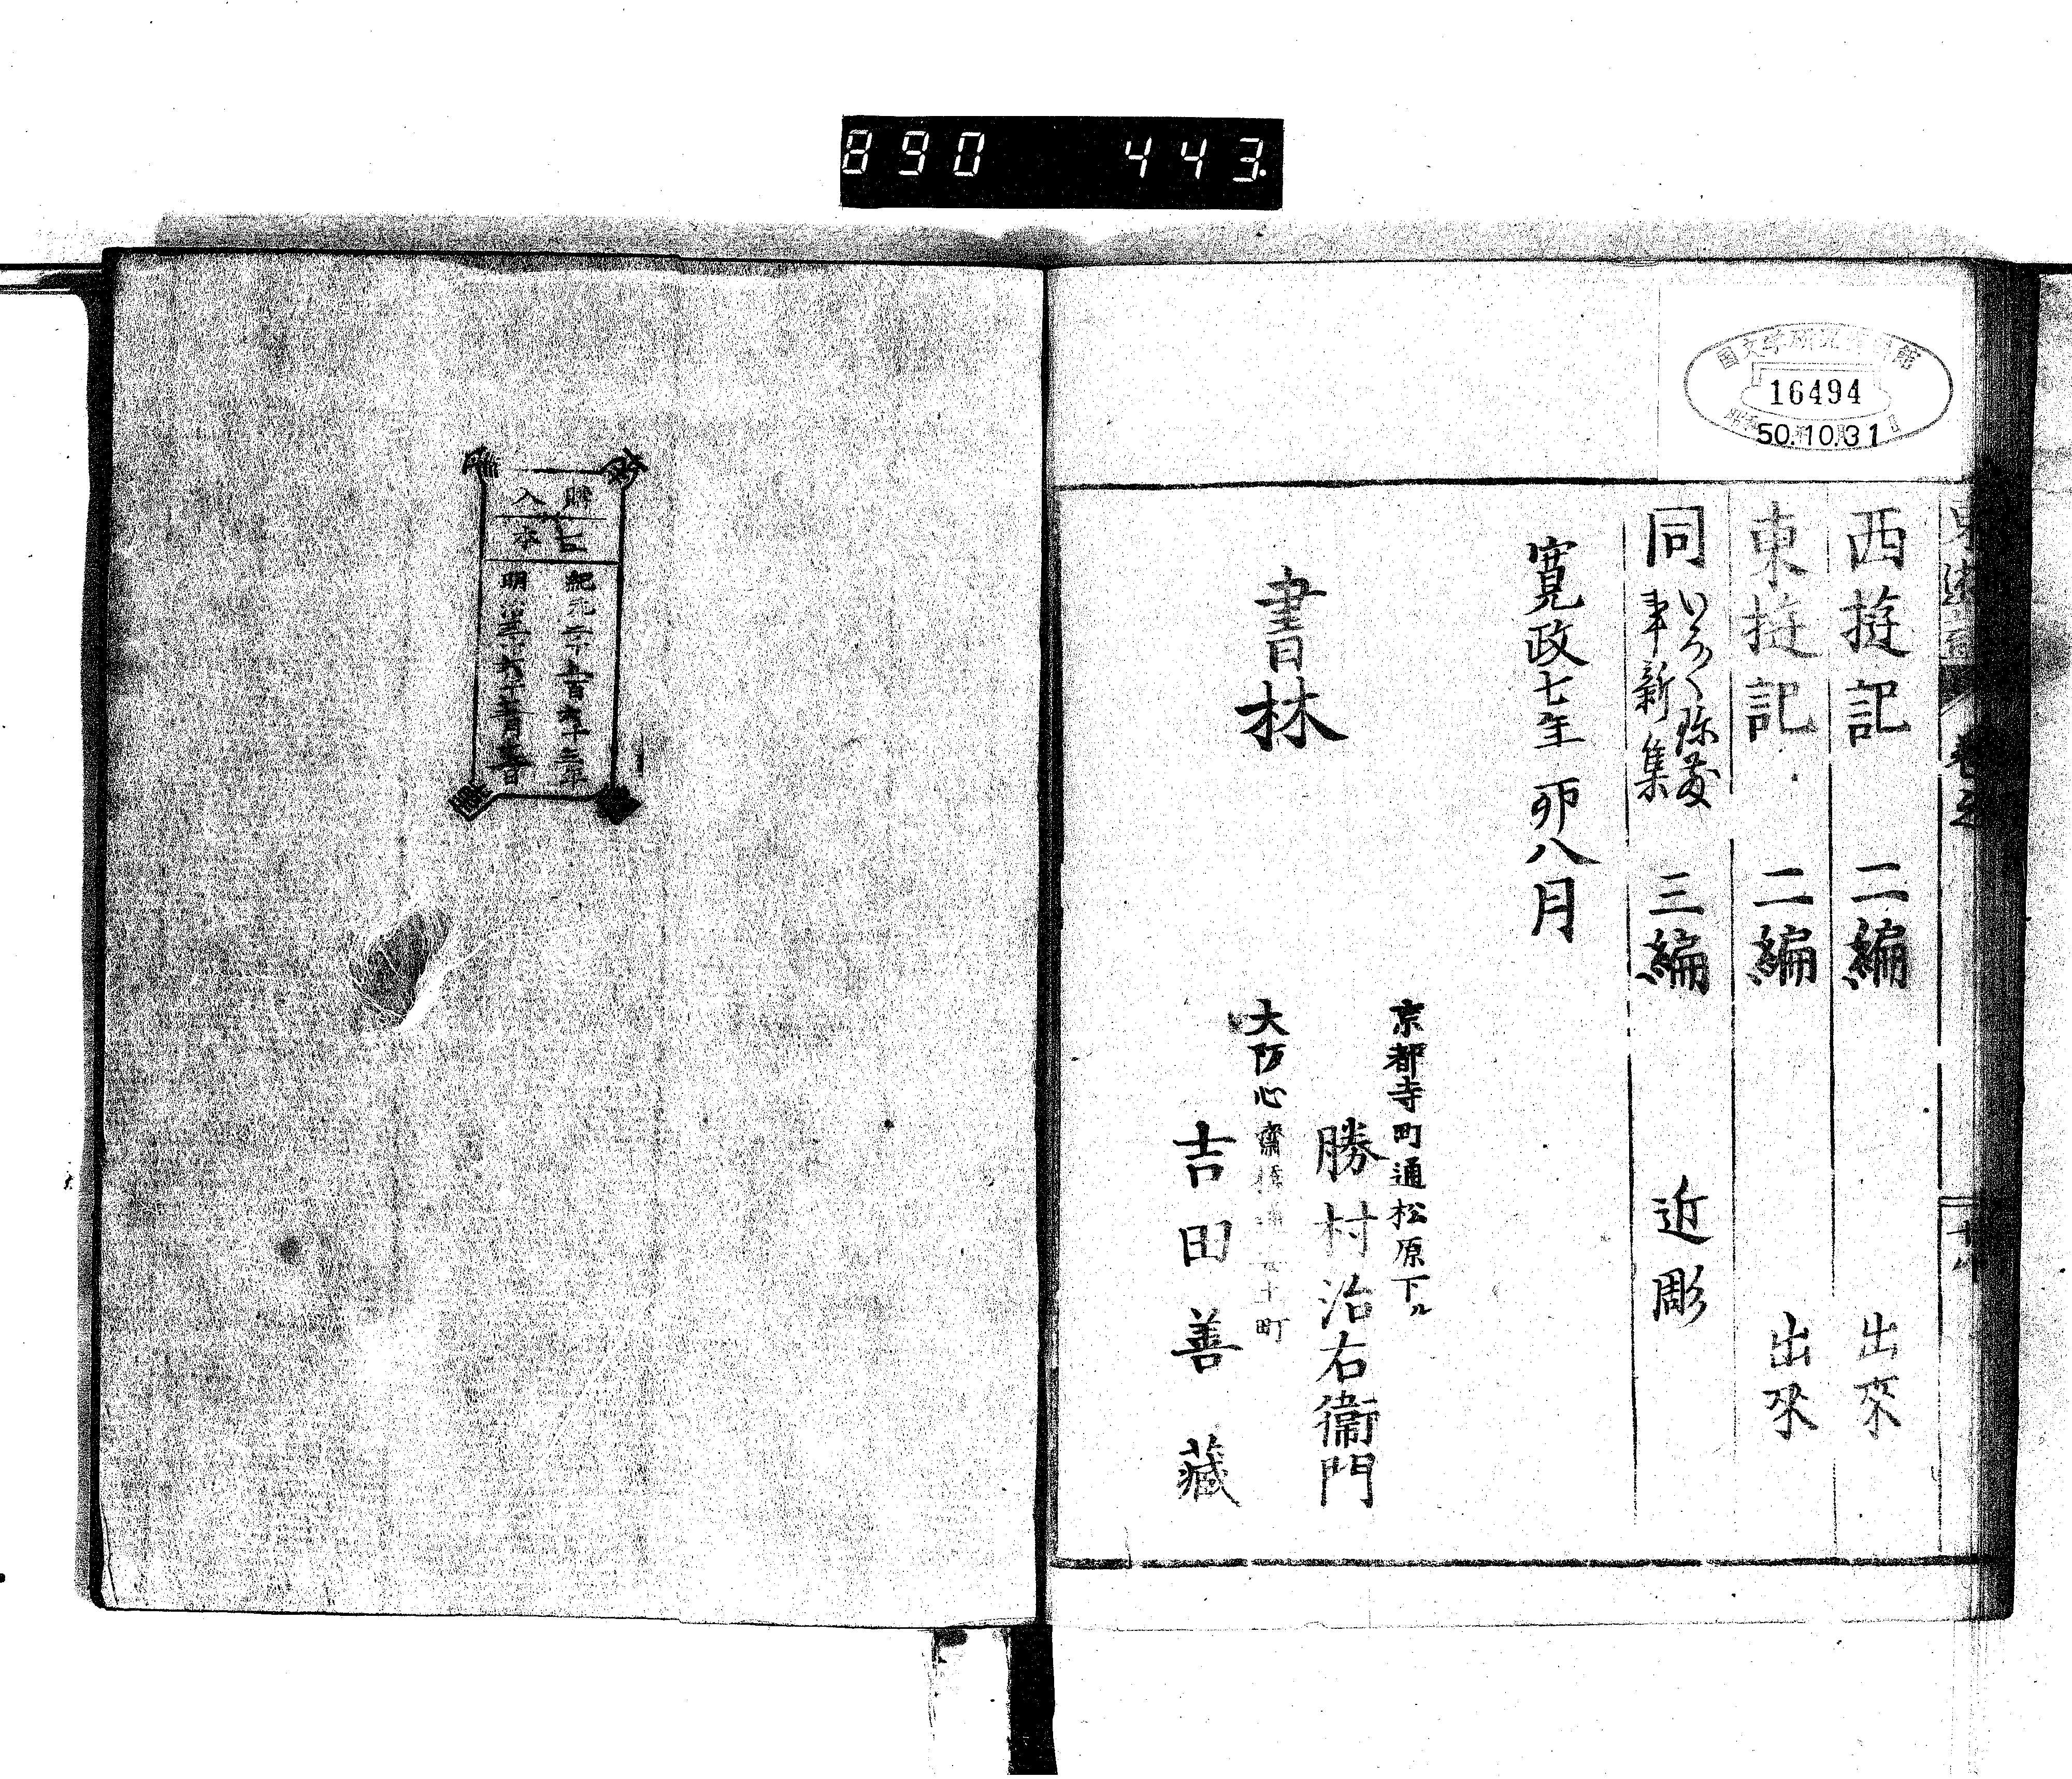 890 443
国文学研究資料館
16494
50.10.31
西遊記 二編 出來
東遊記 二編 出來
同 三編 近彫
事新集
寛政七年卯八月
書林
京都寺町通松原下ル
勝村治右衛門
大阪心齋橋 町
吉田善藏
購入
古本
紀元二千五百六十三年